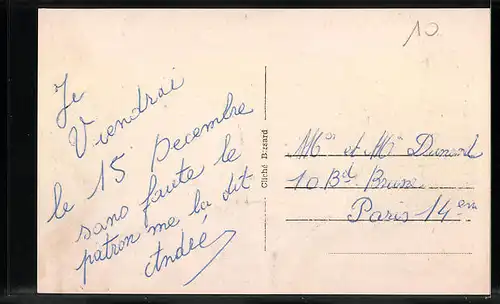 10
Je
Viendrai
le 15 Decembre
sans faute le
patron me la dit
André
Cliché Bizzard
Mor et Me Durand
10 Bd Brune
Paris 14 em